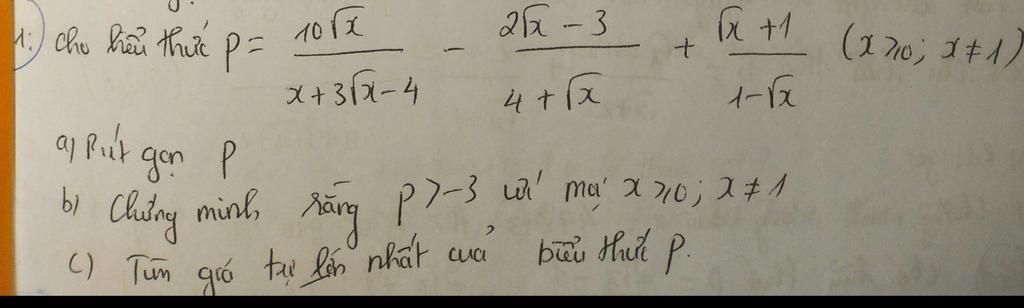 1: Cho biểu thức P = 10√x / (x + 3√x - 4) - (2√x - 3) / (4 + √x) + (√x + 1) / (1 - √x) (x ≥ 0; x ≠ 1)
a) Rút gọn P
b) Chứng minh rằng P > -3 với mọi x ≥ 0; x ≠ 1
c) Tìm giá trị lớn nhất của biểu thức P.